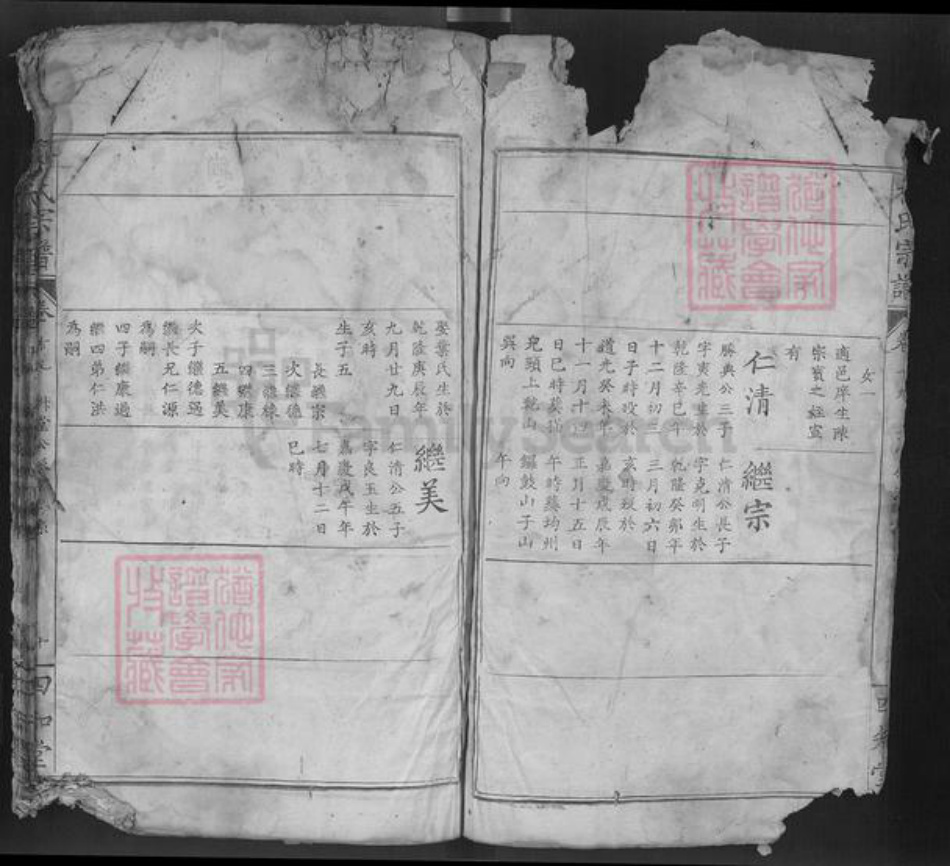 女一
適邑庠生陳
宗賓之姪宣
有
仁清
勝典公三子
字寅光生於
乾隆辛巳年
十二月初三
日子時歿於
道光癸未年
十一月十
日巳時葬
兜頭上乾山
巽向
繼宗
仁清公長子
字克明生於
乾隆癸卯年
三月初六日
亥時歿於
嘉慶戊辰年
正月十五日
午時葬均州
鑼鼓山子山
午向
娶葉氏生於
乾隆庚辰年
九月廿九日
亥時
生子五
長繼宗
次繼德
三繼
四繼康
五繼美
次子繼德過
繼長兄仁源
為嗣
四子繼康過
繼四弟仁洪
為嗣
繼美
仁清公五子
字良玉生於
嘉慶戊午年
七月十二日
巳時
氏宗譜
卷
四知堂
FamilySearch
猶他家
譜學會
收藏
猶他家
譜學會
收藏